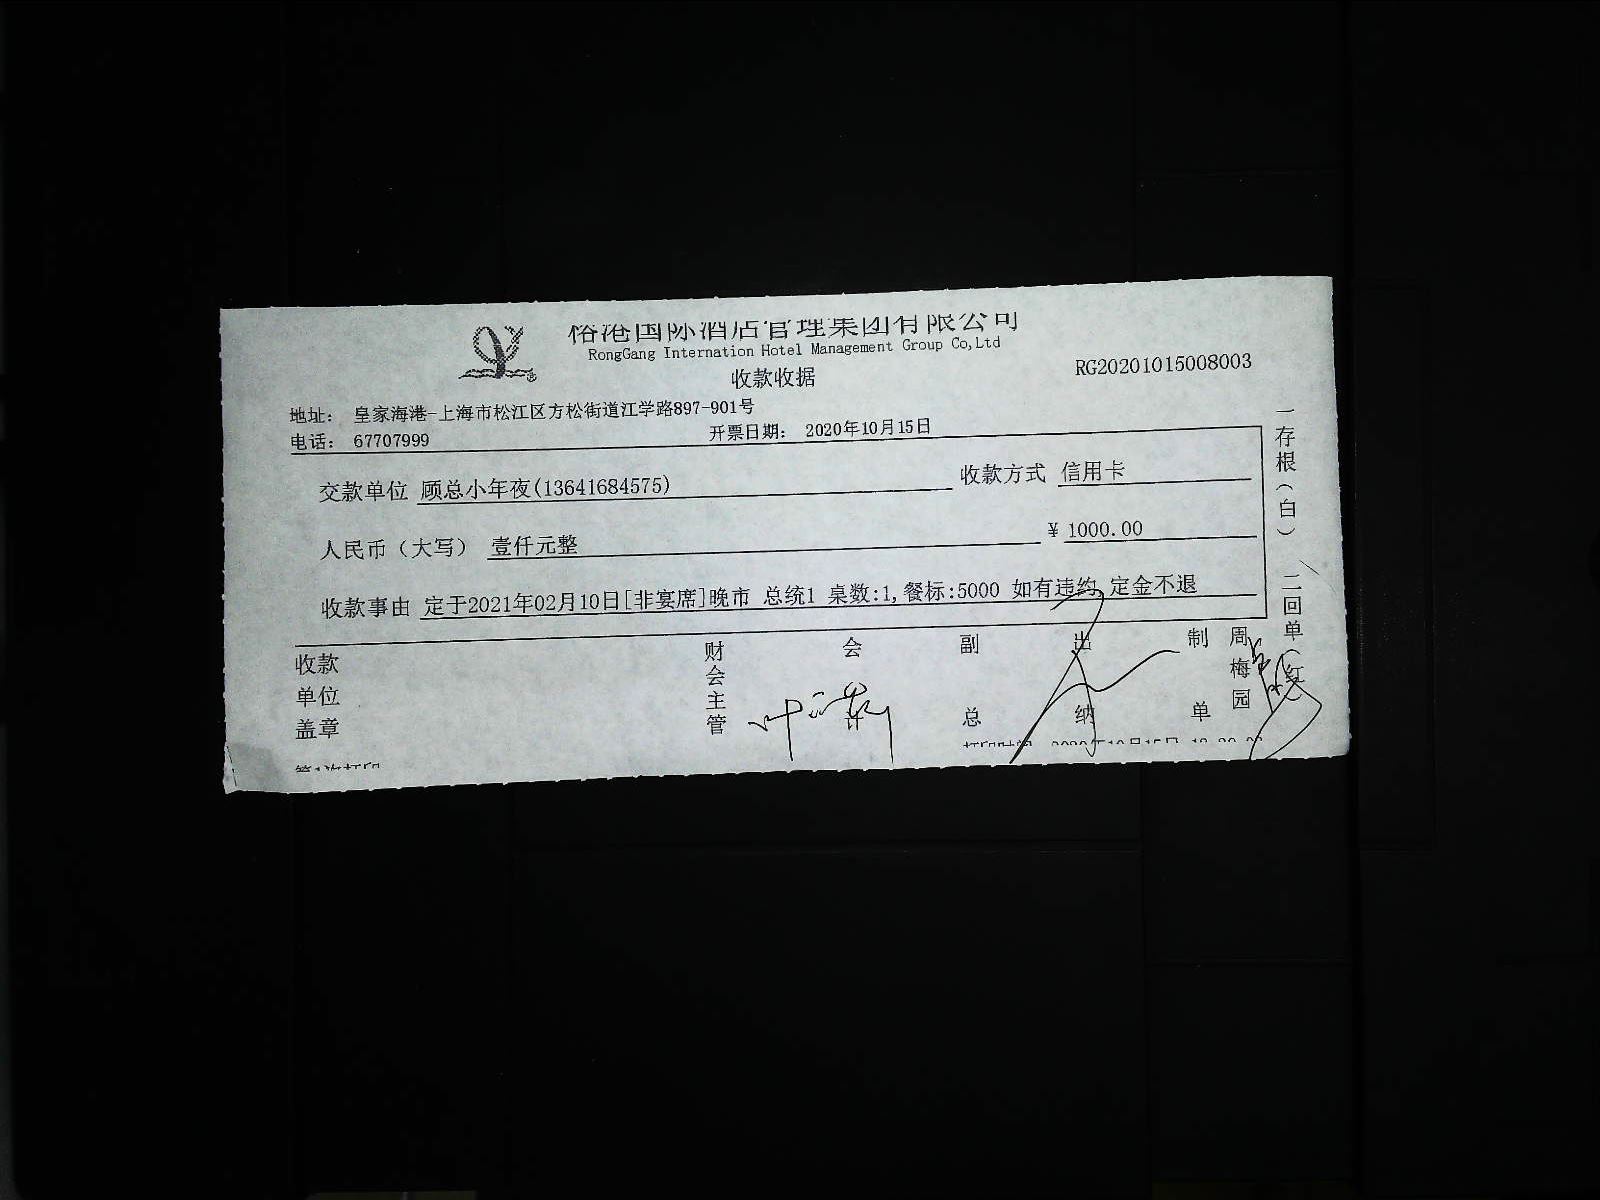 国际酒店管理集团有限公司
RongGang Internation Hotel Management Group Co,Ltd
收款收据
RG20201015008003
地址： 皇家海港-上海市松江区方松街道江学路897-901号
电话： 67707999
开票日期： 2020年10月15日
交款单位 顾总小年夜(13641684575)
收款方式 信用卡
人民币（大写） 壹仟元整
¥ 1000.00
收款事由 定于2021年02月10日[非宴席]晚市 总统1 桌数:1,餐标:5000 如有违约,定金不退
一存根（白） 二回单（红）
收款单位盖章
财会主管
会计
副总
出纳
制单
周梅园
第1次打印
打印时间 2020年10月15日